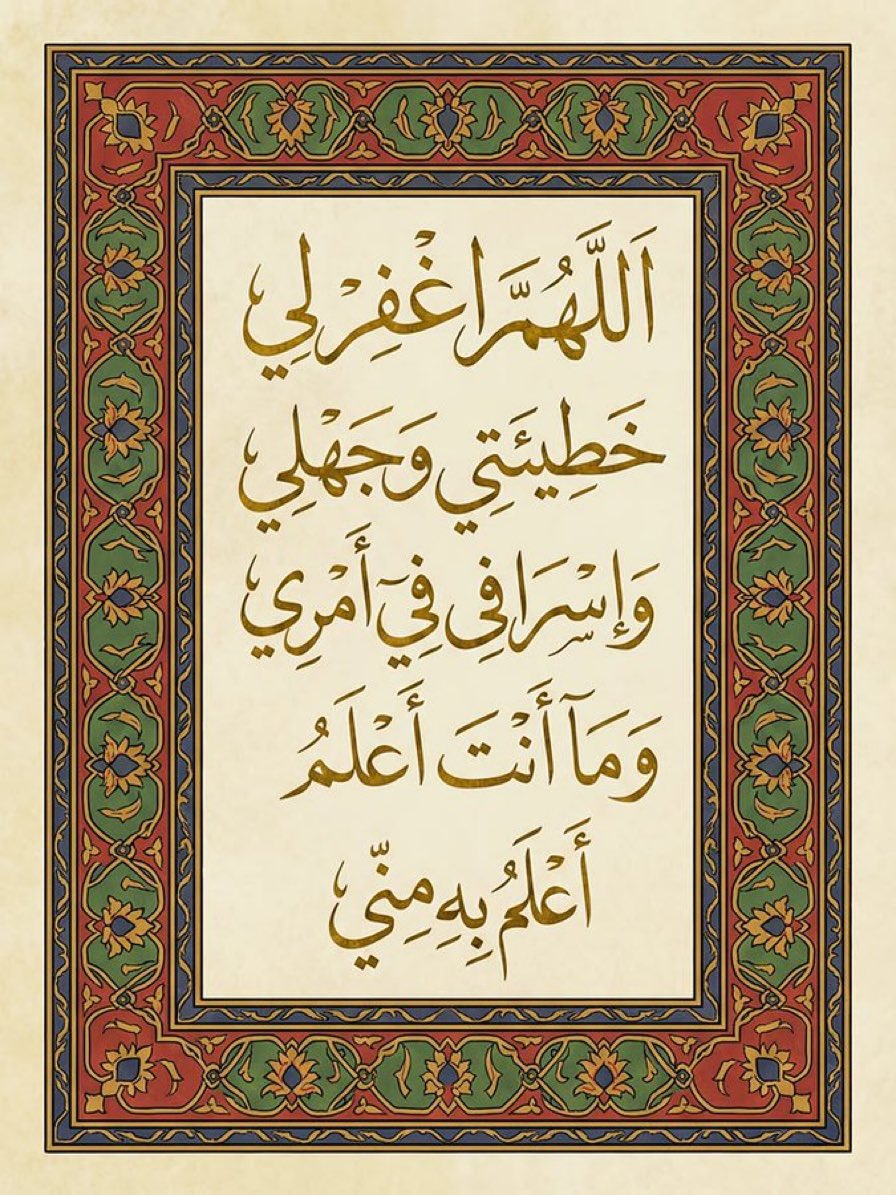 اَللَّهُمَّ اغْفِرْ لِي
خَطِيئَتِي وَجَهْلِي
وَإِسْرَافِي فِي أَمْرِي
وَمَآ أَنْتَ أَعْلَمُ
أَعْلَمُ بِهِ مِنِّي